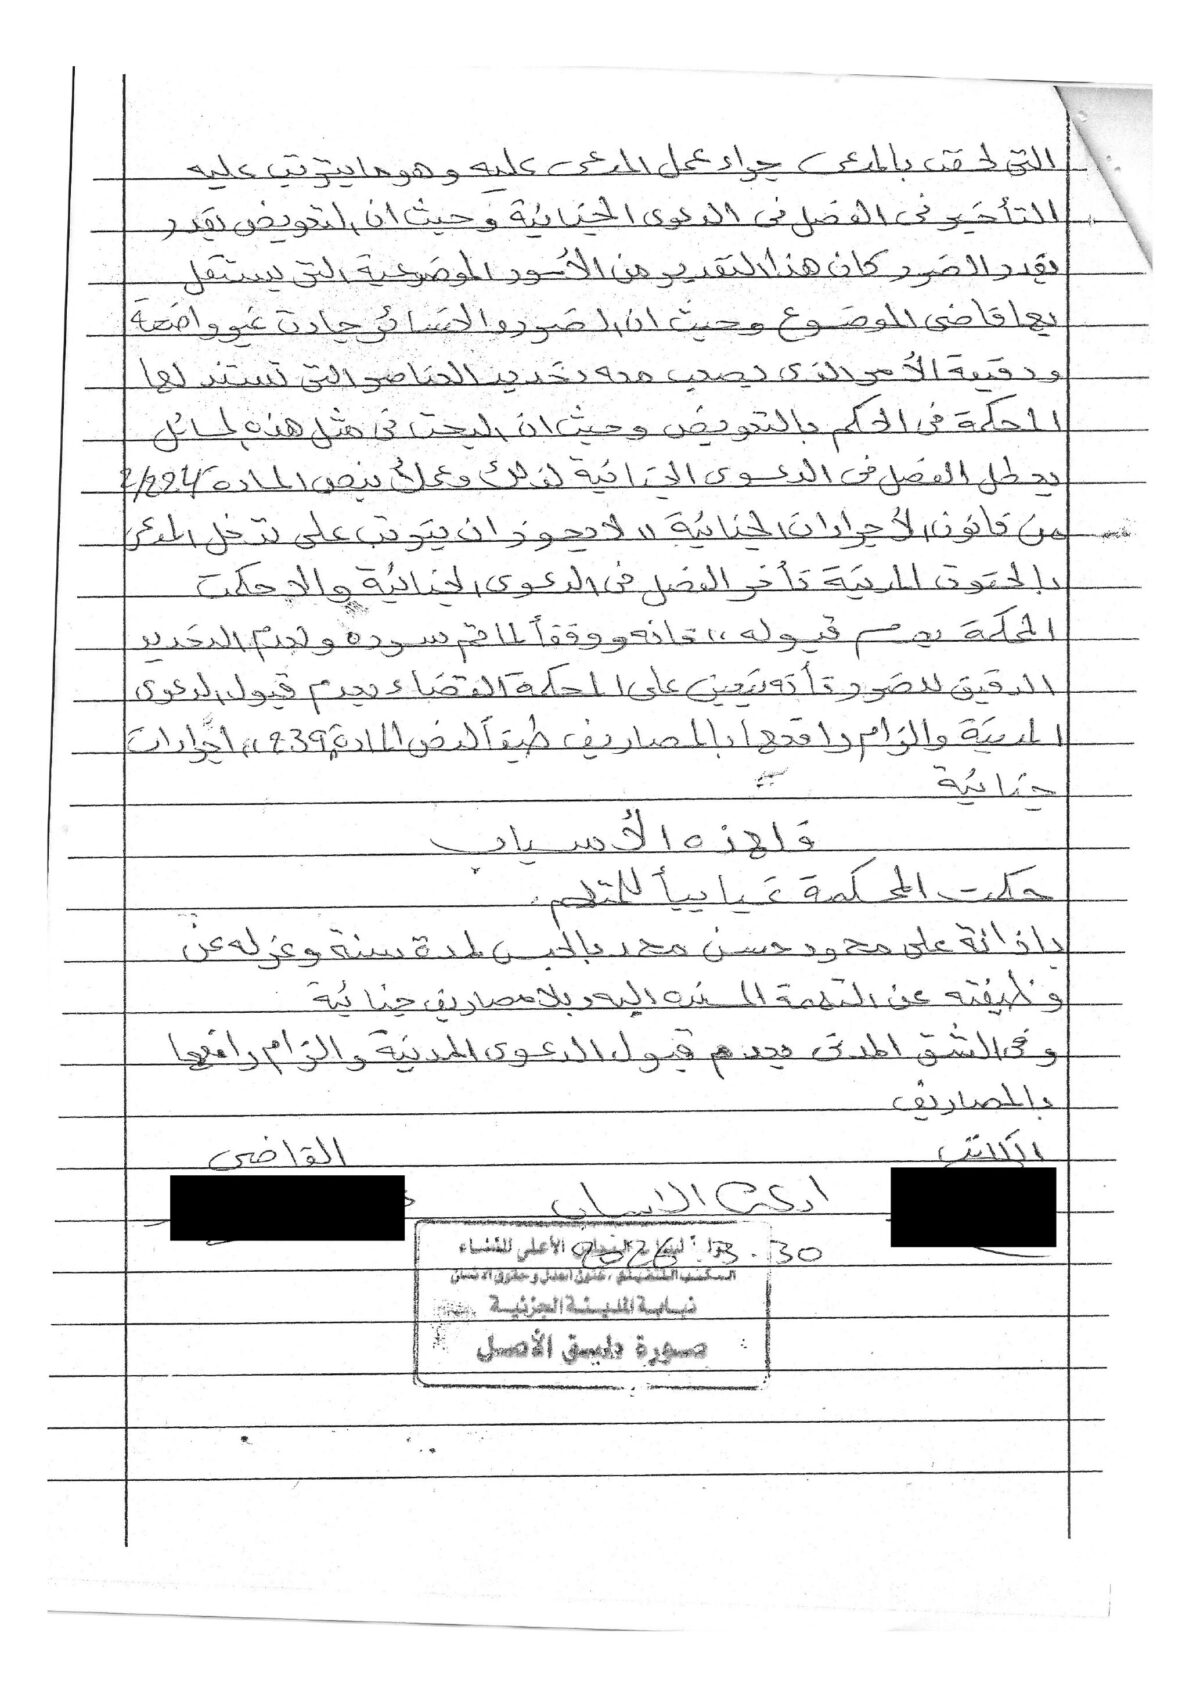 التى لحقت بالمدعى جراء عمل المدعى عليه وهو ما يترتب عليه
التأخير فى الفصل فى الدعوى الجنائية وحيث ان التعويض يقدر
بقدر الضرر كان هذا التقدير من الأمور الموضوعية التى يستقل
بها قاضى الموضوع وحيث ان الضرر والخسائر جاءت غير واضحة
ودقيقة الأمر الذى يصعب معه تحديد العناصر التى تستند لها
المحكمة فى الحكم بالتعويض وحيث ان البحث فى مثل هذه المسائل
يعطل الفصل فى الدعوى الجنائية لذلك وعملاً بنص المادة 2/224
من قانون الأجراءات الجنائية ،، لا يجوز ان يترتب على تدخل المدعى
بالحقوق المدنية تأخر الفصل فى الدعوى الجنائية والا حكمت
المحكمة بعدم قبوله ،، فانه ووفقاً لما تم سرده ولعدم التحديد
الدقيق للضرر فأنه يتعين على المحكمة القضاء بعدم قبول الدعوى
المدنية والزام رافعها بالمصاريف طبقاً لنص المادة ،،239،، اجراءات
جنائية
فلهذه الأسباب
حكمت المحكمة غيابياً للمتهم.
بادانة على محمود حسن محمد بالحبس لمدة سنة وعزله عن
وظيفته عن التهمة المسنده اليه وبلا مصاريف جنائية
وفى الشق المدنى بعدم قبول الدعوى المدنية والزام رافعها
بالمصاريف
الكاتب
القاضى
الاسباب
30
الأعلى للقضاء
نيابة المدينة الجزئية
صورة طبق الأصل